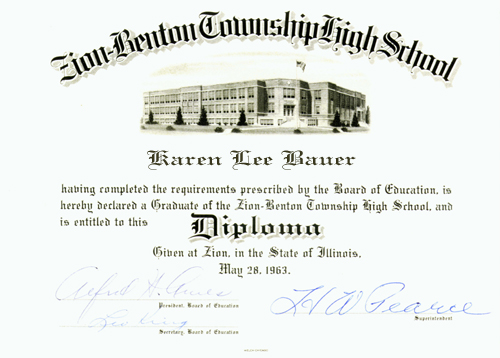 Zion-Benton Township High School
Karen Lee Bauer
having completed the requirements prescribed by the Board of Education, is
hereby declared a Graduate of the Zion-Benton Township High School, and
is entitled to this Diploma
Given at Zion, in the State of Illinois,
May 28, 1963.
President, Board of Education
H W Pearce
Superintendent
Secretary, Board of Education